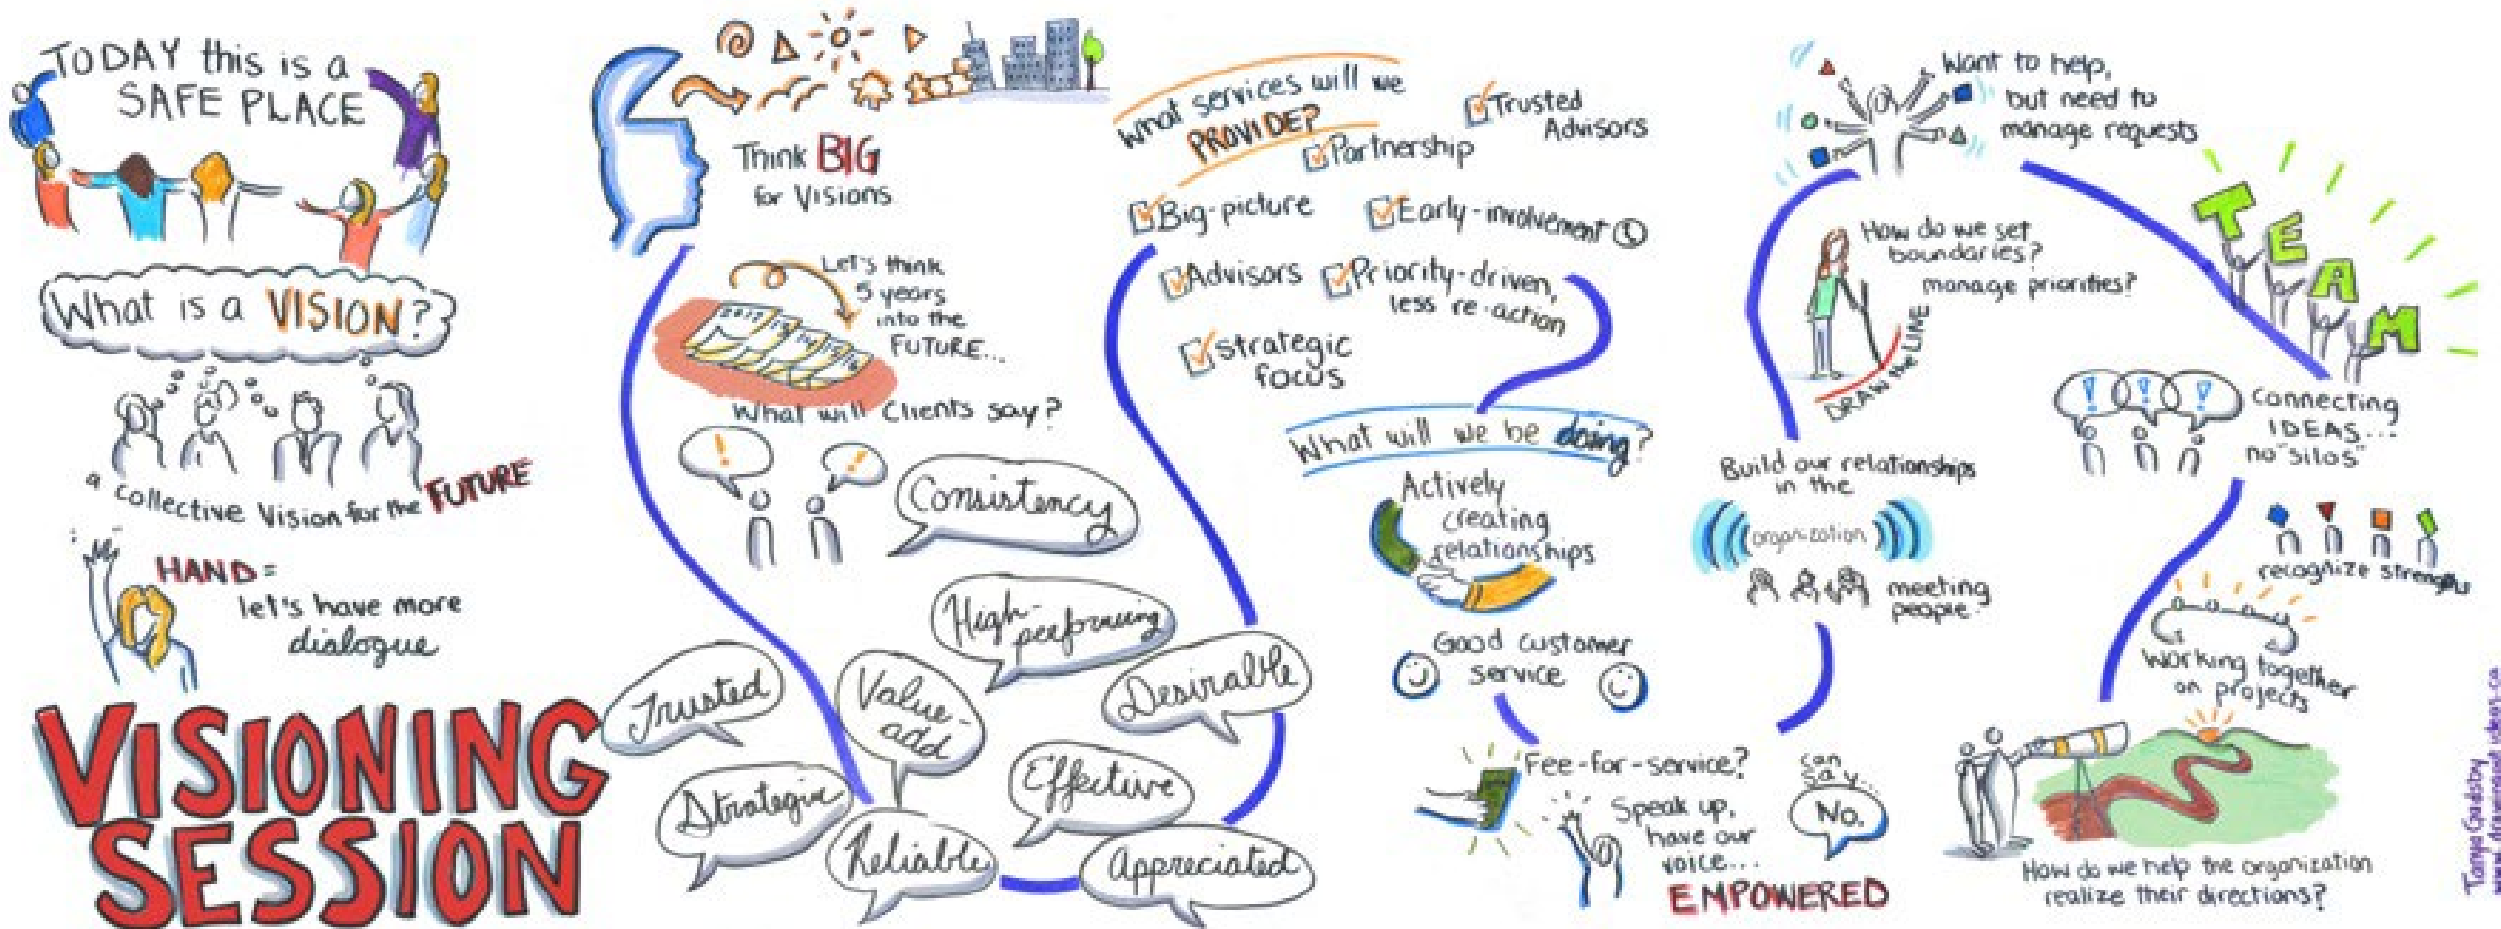 TODAY this is a
SAFE PLACE
What is a VISION?
a collective Vision for the FUTURE
HAND =
let's have more
dialogue
VISIONING
SESSION
Think BIG
for Visions
Let's think
5 years
into the
FUTURE...
What will clients say?
Consistency
High-
performing
Trusted
Value-
add
Desirable
Strategic
Effective
Reliable
Appreciated
What services will we
PROVIDE?
Trusted
Advisors
Partnership
Big-picture
Early-involvement
Advisors
Priority-driven,
less re-action
strategic
focus
What will we be doing?
Actively
creating
relationships
Good customer
service
Fee-for-service?
Speak up,
have our
voice....
EMPOWERED
can
say...
No.
Want to help,
but need to
manage requests
How do we set
boundaries?
manage priorities?
DRAW the LINE
Build our relationships
in the
organization
meeting
people
TEAM
connecting
IDEAS...
no "silos"
recognize strengths
working together
on projects
How do we help the organization
realize their directions?
Tanya Gadsby